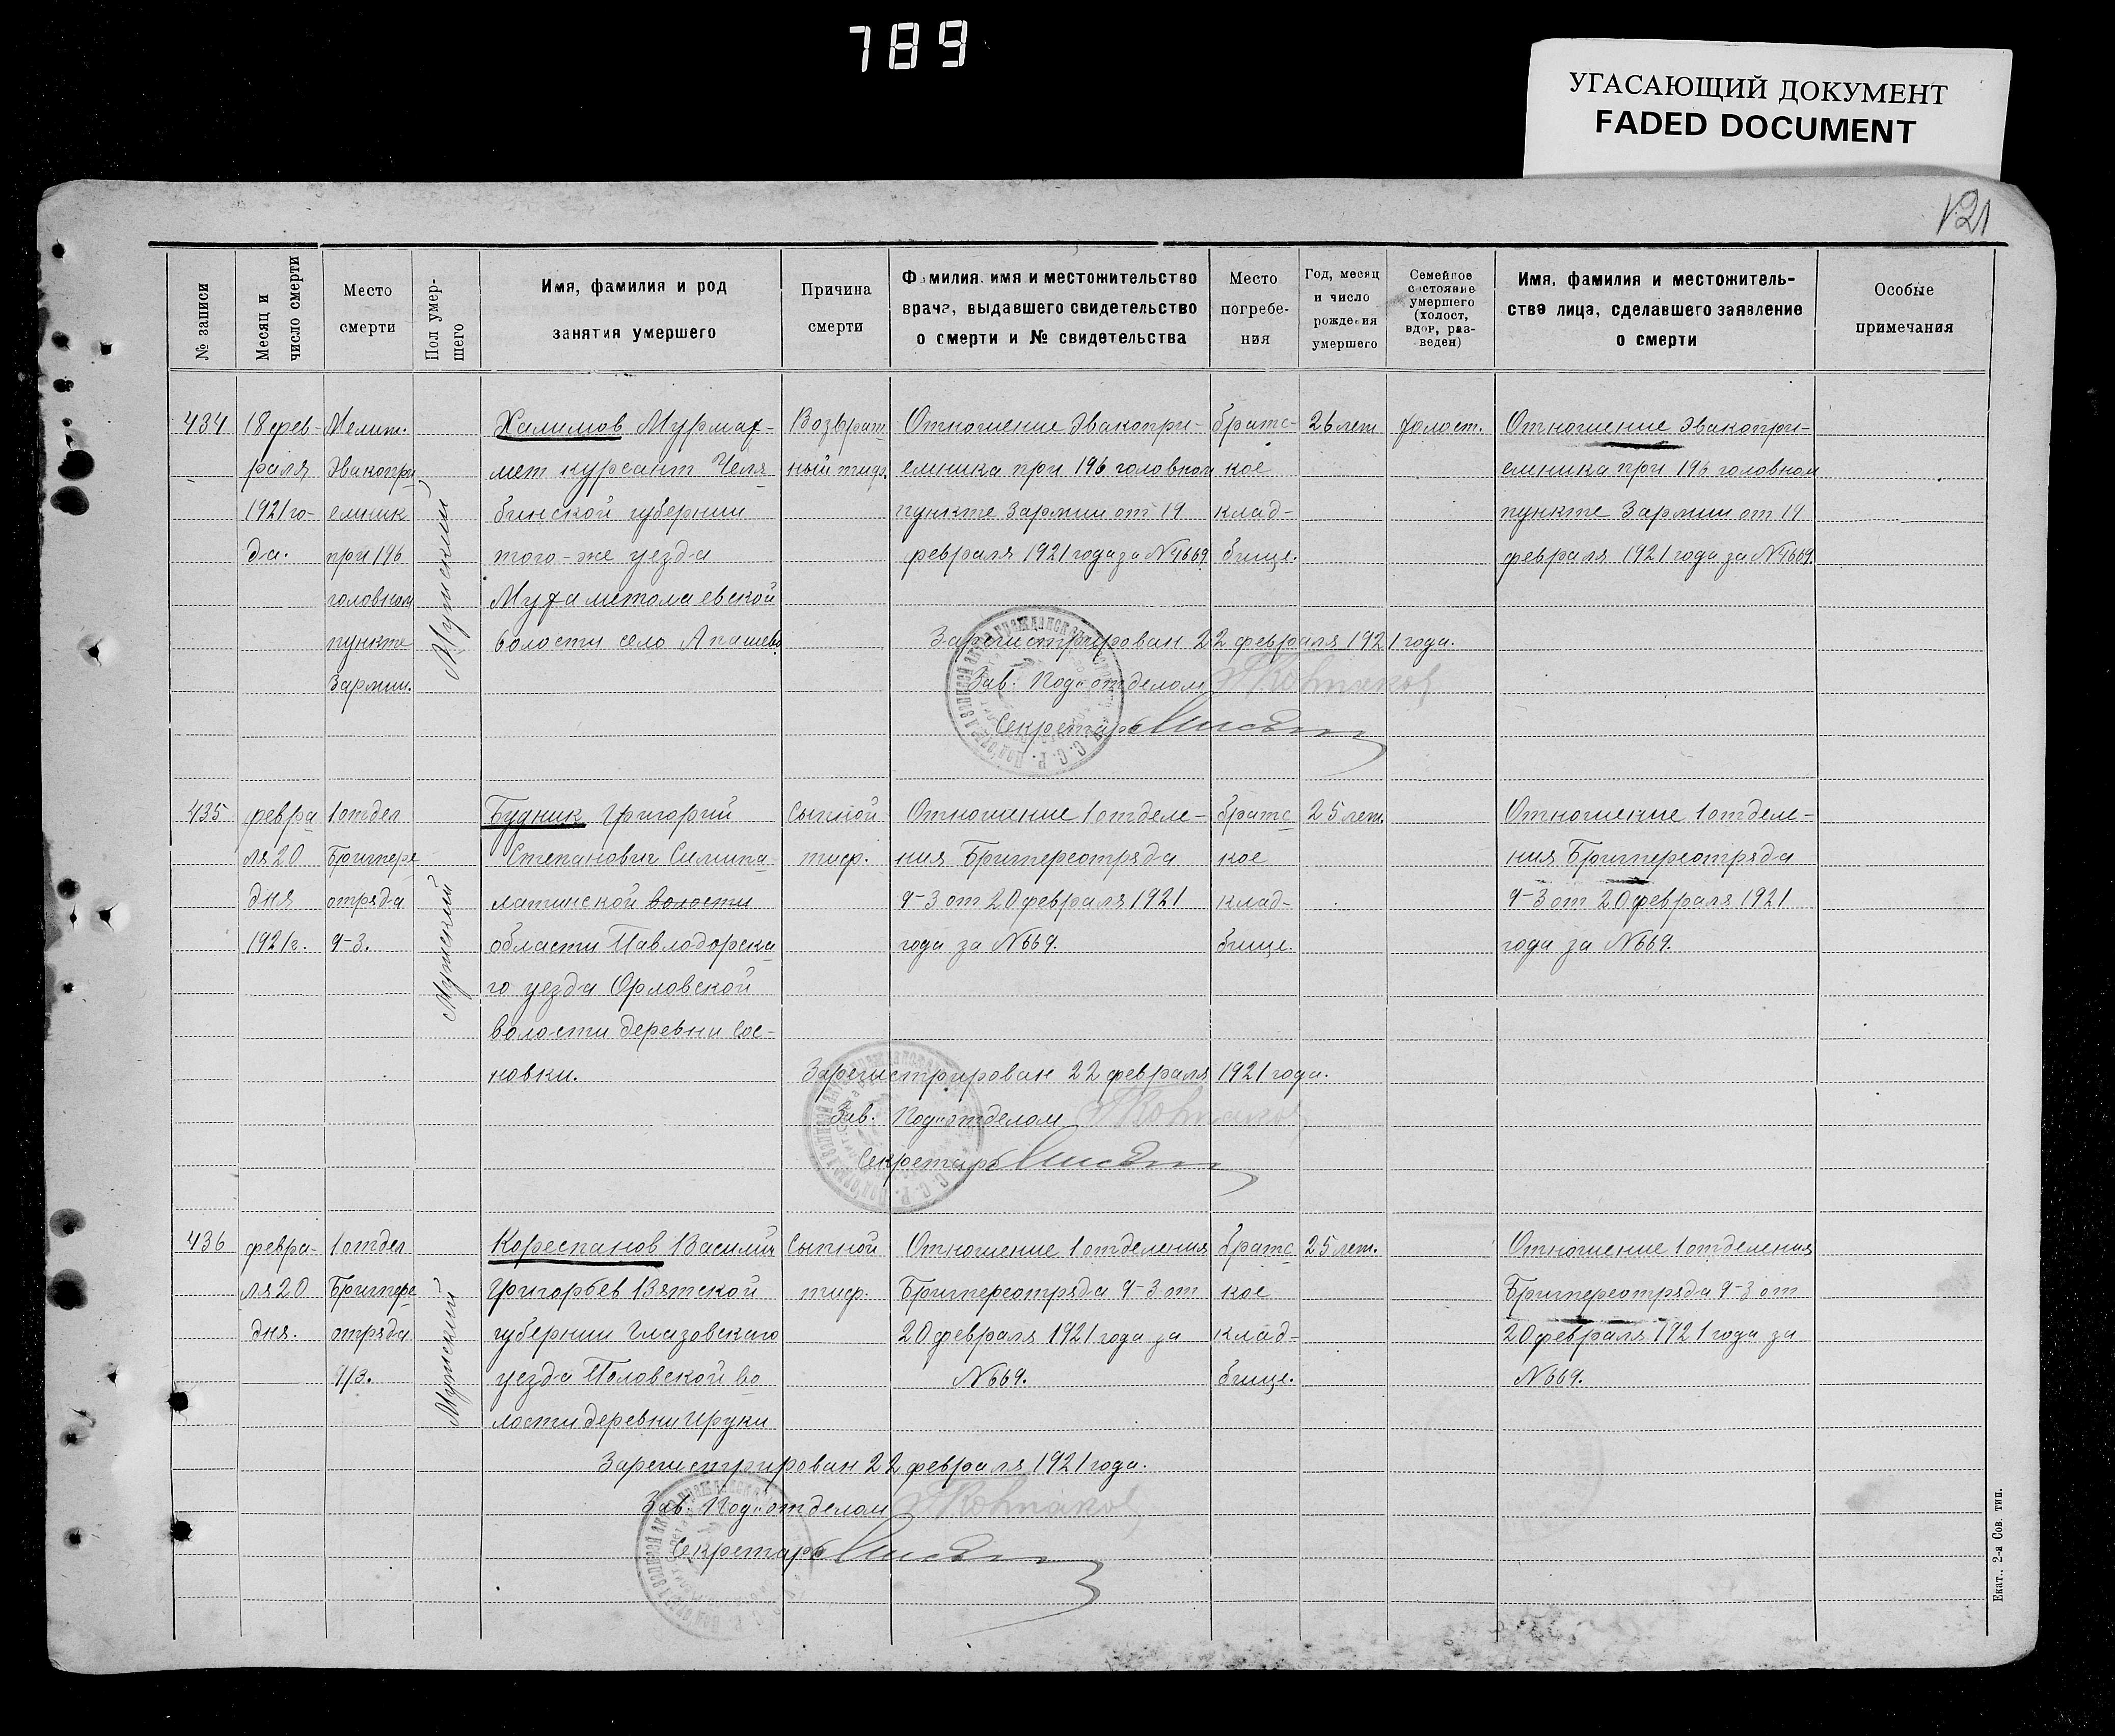 789
УГАСАЮЩИЙ ДОКУМЕНТ
FADED DOCUMENT
121
№ записи
Месяц и число смерти
Место смерти
Пол умершего
Имя, фамилия и род занятия умершего
Причина смерти
Фамилия, имя и местожительство врача, выдавшего свидетельство о смерти и № свидетельства
Место погребения
Год, месяц и число рождения умершего
Семейное состояние умершего (холост, вдов, разведен)
Имя, фамилия и местожительство лица, сделавшего заявление о смерти
Особые примечания
434
18 фев-
раля
1921 го-
да.
Мелит.
Эвакопри
емник
при 196
головном
пункте
3армии.
Мужский
Халимов Мурмах-
мет курсант Челя
бинской губернии
того-же уезда
Мухаметолаевской
волости село Апашево
Возврат
ный тиф.
Отношение Эвакопри-
емника при 196 головном
пункте 3армии от 19
февраля 1921 года за №1669.
братс-
кое
клад-
бище.
26 лет
холост.
Отношение Эвакопри-
емника при 196 головном
пункте 3армии от 19
февраля 1921 года за №1669.
Зарегистрирован 22 февраля 1921 года.
Зав. Под"отделом
Секретарь
435
февра
ля 20
дня
1921г.
1 отдел
Бригпере
отряда
9-3.
Мужский
Будник Григорий
Степанович Симипа-
латинской волости
области Павлодорска
го уезда Орловской
волости деревни Сос-
новки.
Сыпной
тиф.
Отношение 1 отделе-
ния Бригпереотряда
9-3 от 20 февраля 1921
года за №669.
братс
кое
клад-
бище.
25 лет.
Отношение 1 отделе-
ния Бригпереотряда
9-3 от 20 февраля 1921
года за №669.
Зарегистрирован 22 февраля 1921 года.
Зав. Под"отделом
Секретарь
436
февра-
ля 20
дня.
1 отдел
Бригпере
отряда
9/3.
Мужский
Кореспанов Василий
Григорьев Вятской
губернии Глазовского
уезда Половской во
лости деревни Ируки
Сыпной
тиф.
Отношение 1 отделения
Бригпереотряда 9-3 от
20 февраля 1921 года за
№669.
братс
кое
клад-
бище.
25 лет.
Отношение 1 отделения
Бригпереотряда 9-3 от
20 февраля 1921 года за
№669.
Зарегистрирован 22 февраля 1921 года.
Зав. Под"отделом
Секретарь
Екат., 2-я Сов. тип.